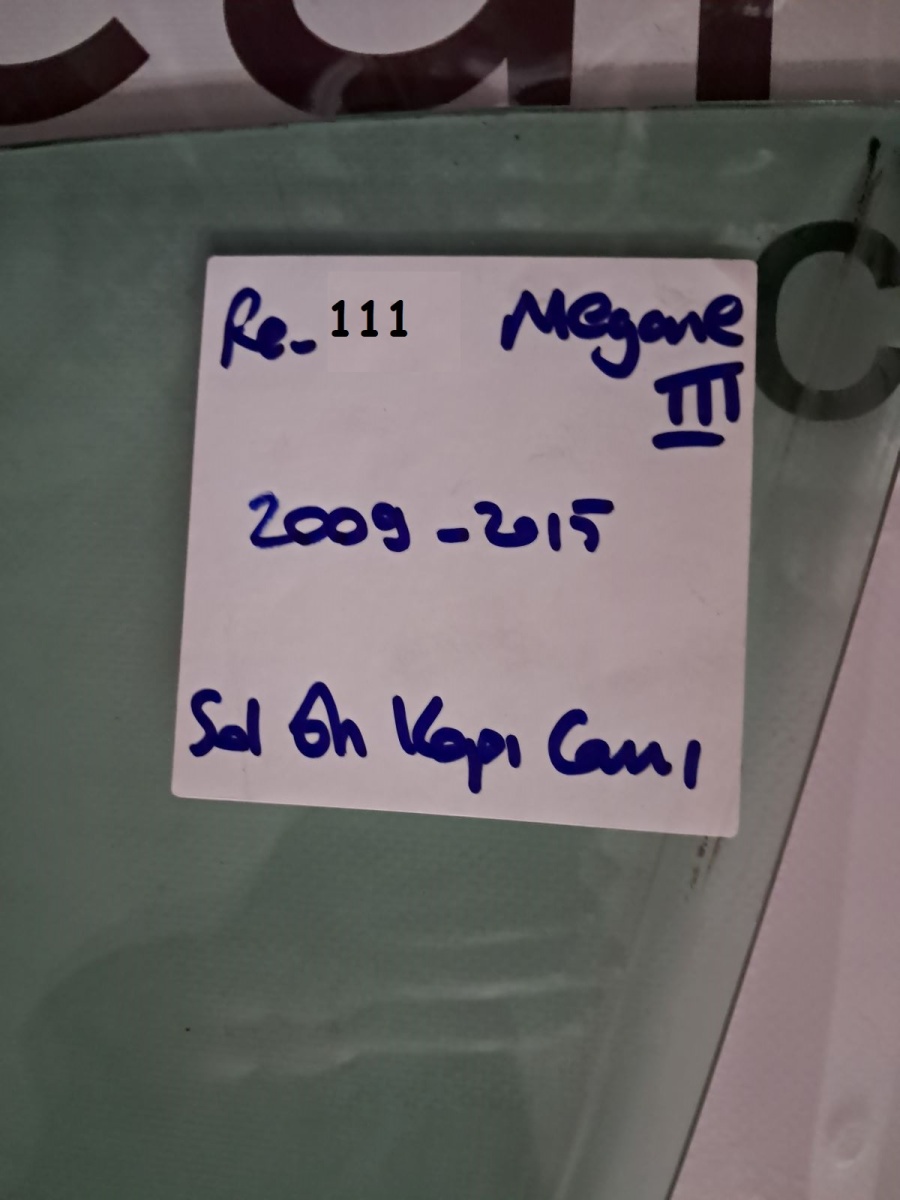 car
c
Re-111 Megane
III
2009-2015
Sol Ön Kapı Camı